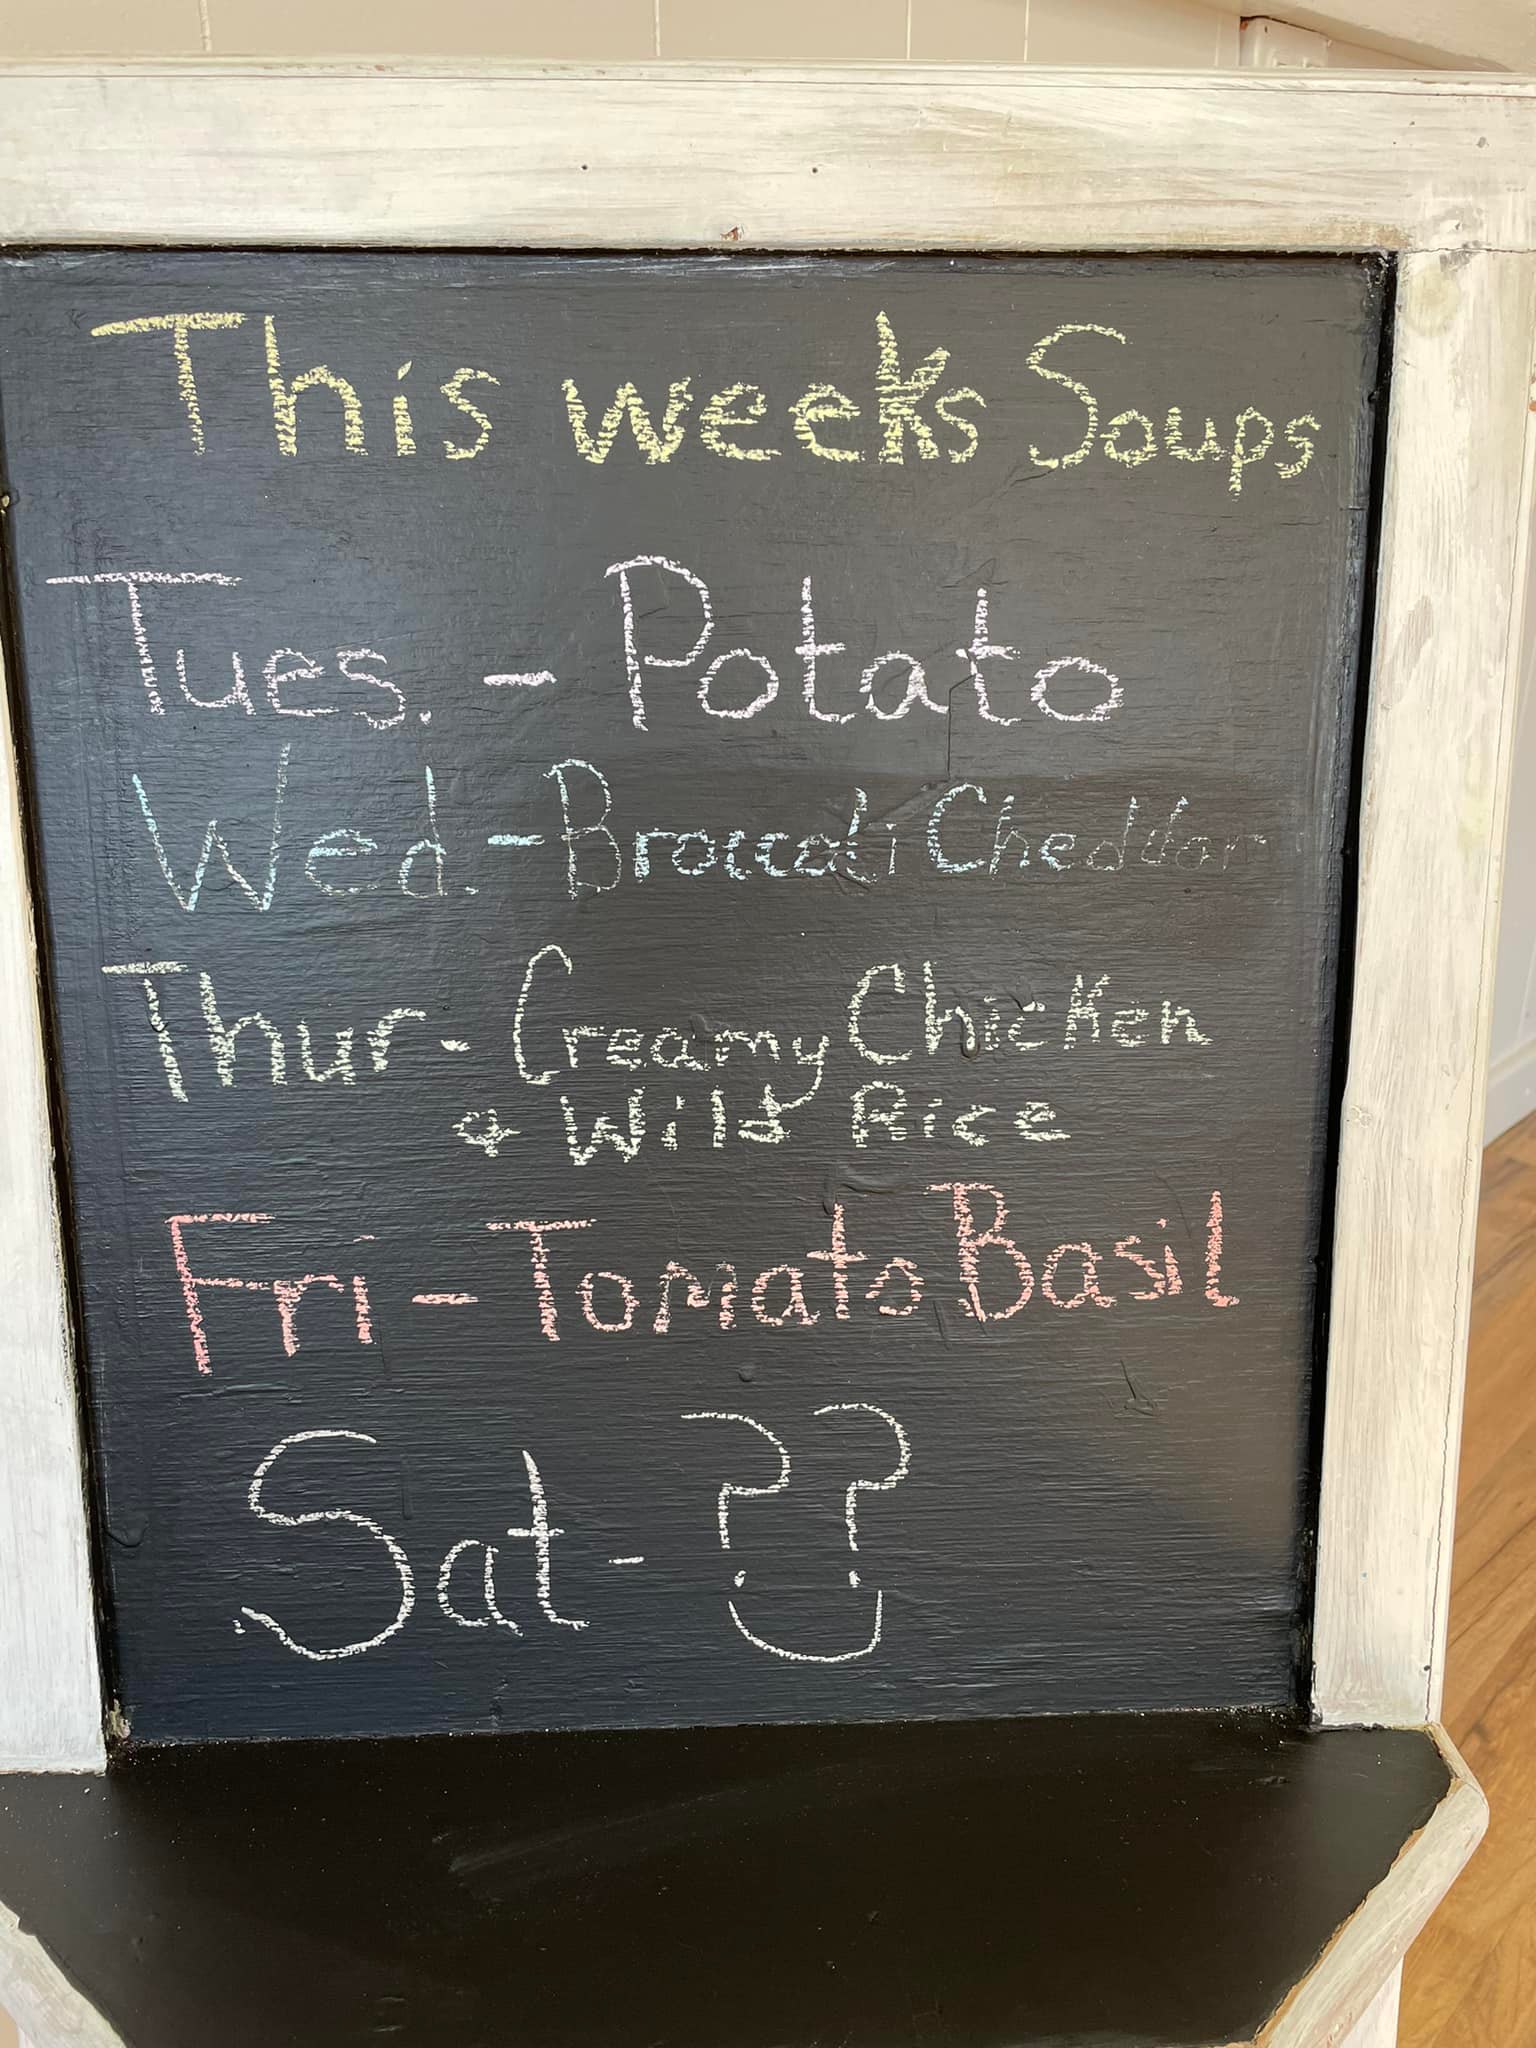 This weeks Soups
Tues. - Potato
Wed. - Broccoli Cheddar
Thur - Creamy Chicken
& Wild Rice
Fri - Tomato Basil
Sat - ??